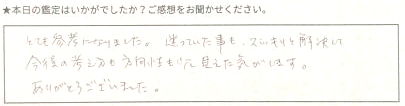 ★本日の鑑定はいかがでしたか？ご感想をお聞かせください。
とても参考になりました。迷っていた事も、スッキリと解決して
今後の考え方も方向性も見えた気がします。
ありがとうございました。